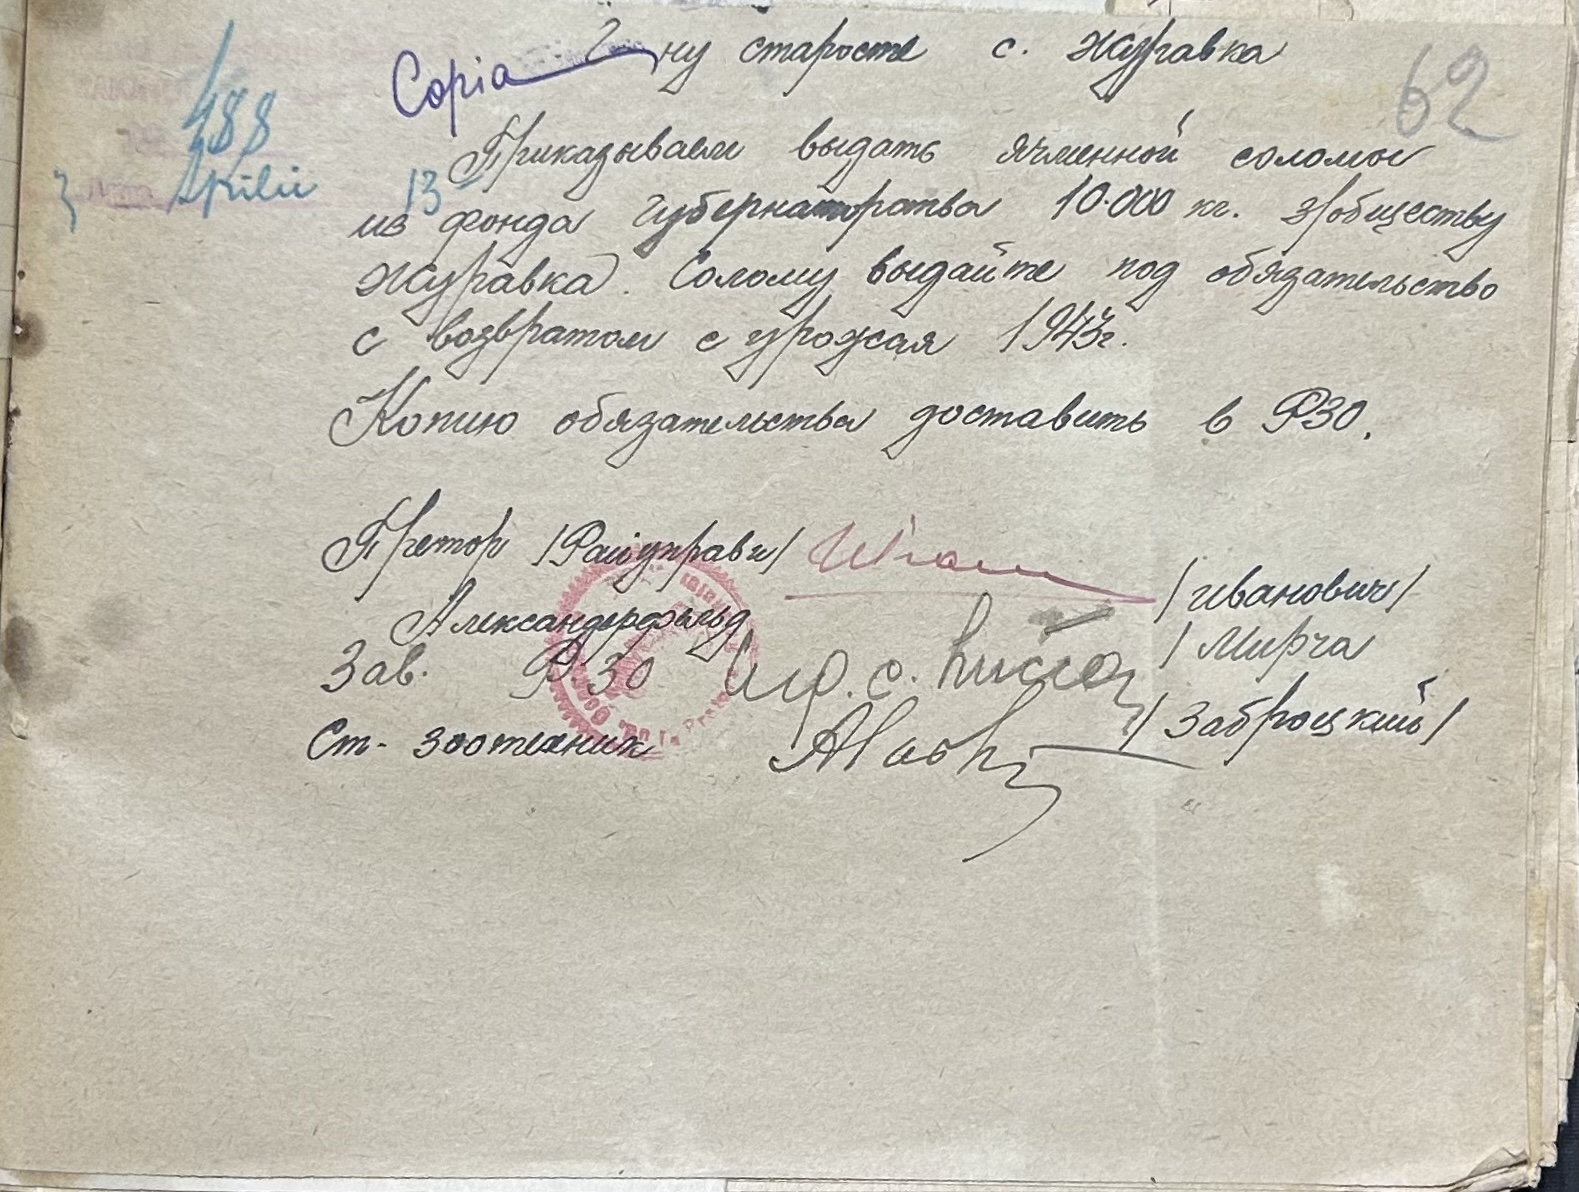 62
Copia
Г-ну старосте с. Журавка
488
Aprilie 13
Приказываем выдать ячменной соломы
из фонда губернаторства 10.000 кг. з/обществу
Журавка. Солому выдайте под обязательство
с возвратом с урожая 1943г.
Копию обязательства доставить в РЗО.
Претор /Райуправы/ /Иванович/
Александерфельд
Зав. РЗО /Мирча
Ст. зоотехник /Заброцкий/